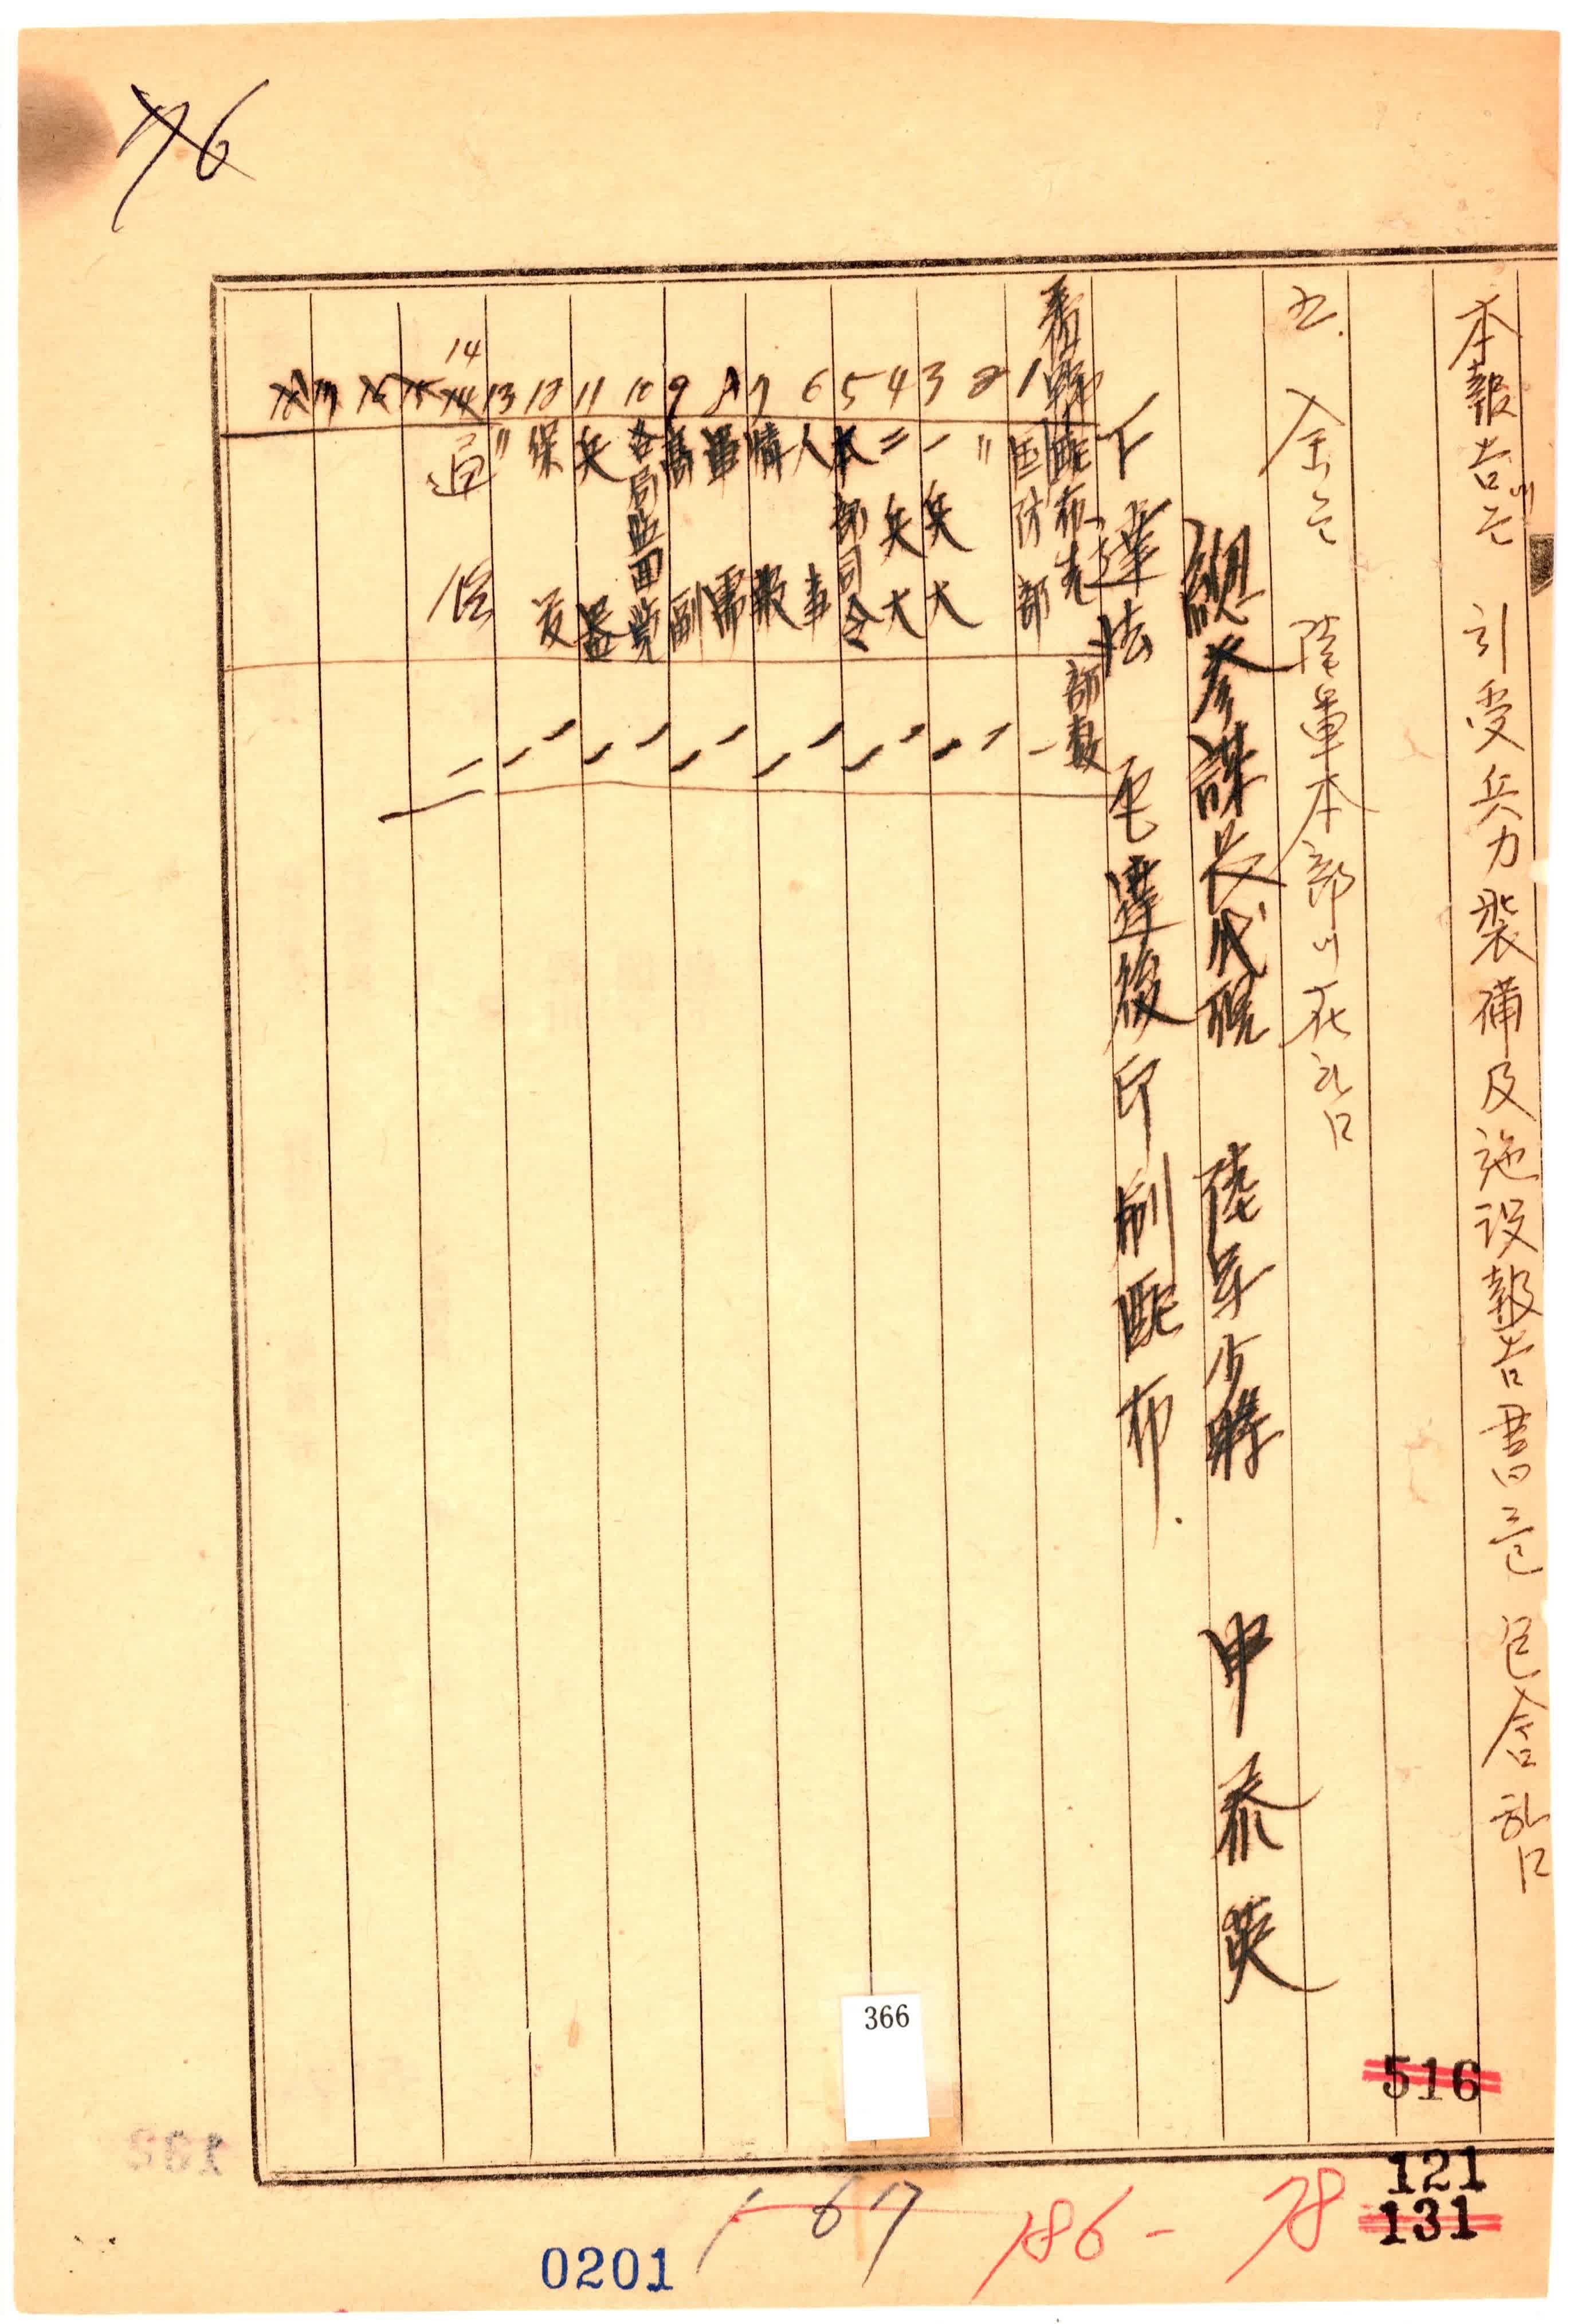 本報告에는 引受兵力裝備及施設報告書를 包含함
五. 余는 陸軍本部에 在함
總參謀長代理 陸軍少將 申泰英
下達法 電達後印刷配布.
番号 配布先 部数
1 国防部 一
2 〃 一
3 一兵大 一
4 二兵大 一
5 本部司令 一
6 人事 一
7 情報 一
8 軍需 一
9 高副 一
10 各局監回覽 一
11 兵器 一
12 保安 一
13 〃 一
14 通信 二
76
366
516
121
131
0201
167
186-78